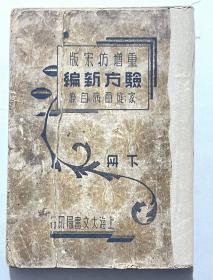 重增仿宋版
驗方新編
家庭百病自療
下册
上海大文書局印行